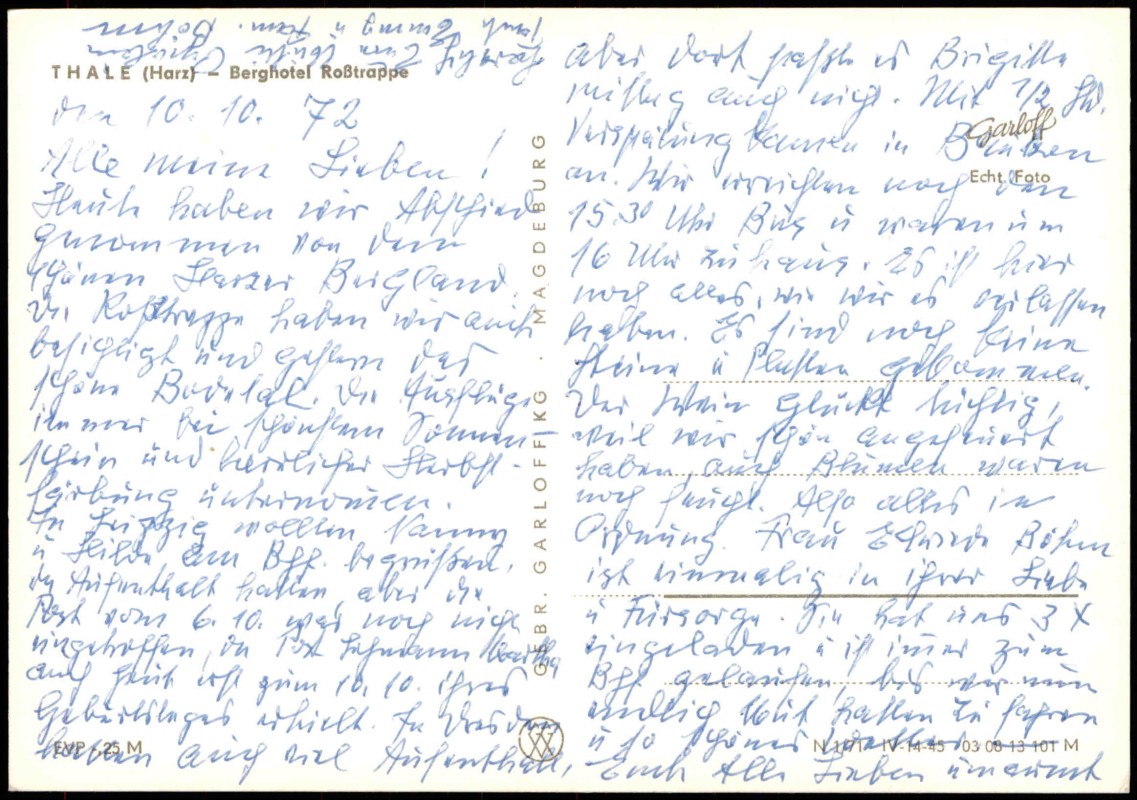 THALE (Harz) – Berghotel Roßtrappe
den 10. 10. 72
Alle meine Lieben!
Heute haben wir Abschied
genommen von dem
schönen Harzer Bergland.
Die Roßtrappe haben wir auch
besichtigt und gestern das
schöne Bodetal. Die Ausflüge
immer bei schönstem Sonnen-
schein und herrlicher Herbst-
färbung unternomen.
In Leipzig wollten Nanny
u Hilde am Bhf. begrüßen,
da Aufenthalt hatten aber die
Post vom 6. 10. war noch nicht
eingetroffen, da Lehmann Martha
auch heut erst zum 10. 10. ihres
Geburtstages erhielt. In Dresden
hatten auch viel Aufenthalt,
aber dort paßte es Brigitte
mittag auch nicht. Mit 1/2 Std.
Verspätung kamen in Bautzen
an. Wir erreichten noch den
15.30 Uhr Bus u waren um
16 Uhr zu haus. Es ist hier
noch alles, wie wir es verlassen
haben. Es sind noch keine
Steine u Platten gekommen.
Der Wein gluckt tüchtig,
weil wir schön angefeuert
haben, auch Blumen waren
noch feucht. Also alles in
Ordnung. Frau Böhm
ist einmalig in ihrer Liebe
u Fürsorge. Sie hat uns 3 X
eingeladen u ist imer zum
Bhf. gelaufen, bis wir nun
endlich Mut hatten zu fahren
u so schönes Wetter
Euch Alle Lieben umarmt
u fam. Böhm
Garloff
Echt Foto
GEBR. GARLOFF KG. MAGDEBURG
EVP -,25 M
N 1/71 IV-14-45 03 08 13 101 M